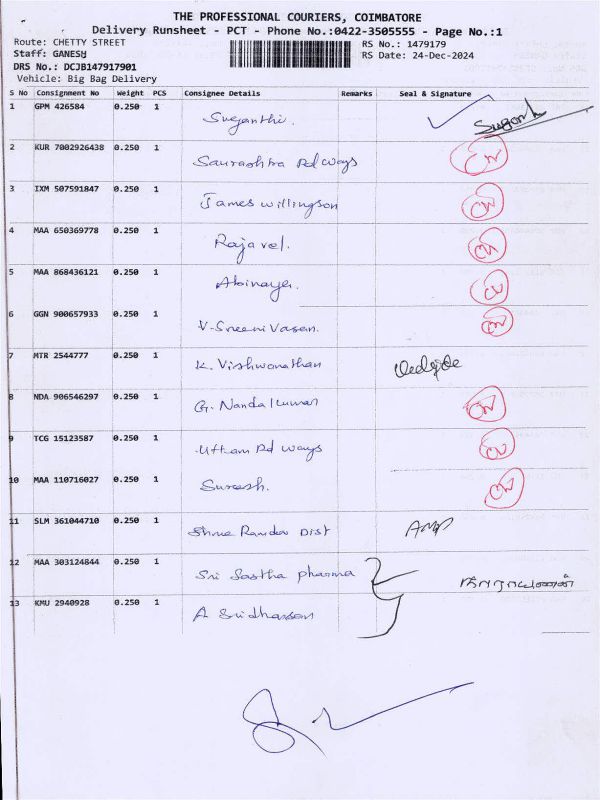 THE PROFESSIONAL COURIERS, COIMBATORE
Delivery Runsheet - PCT - Phone No.:0422-3505555 - Page No.:1
Route: CHETTY STREET RS No.: 1479179
Staff: GANESH RS Date: 24-Dec-2024
DRS No.: DCJB147917901
Vehicle: Big Bag Delivery
S No Consignment No Weight PCS Consignee Details Remarks Seal & Signature
1 GPM 426584 0.250 1 Suganthi.
2 KUR 7002926438 0.250 1 Saurashtra Rd ways
3 IXM 507591847 0.250 1 James willingson
4 MAA 650369778 0.250 1 Rajavel.
5 MAA 868436121 0.250 1 Abinaya.
6 GGN 900657933 0.250 1 V. Sreenivasan.
7 MTR 2544777 0.250 1 K. Vishwanathan
8 NDA 906546297 0.250 1 G. Nandakumar
9 TCG 15123587 0.250 1 Uttam Rd ways
10 MAA 110716027 0.250 1 Suresh.
11 SLM 361044710 0.250 1 Shree Randev Dist
12 MAA 303124844 0.250 1 Sri Sastha pharma
13 KMU 2940928 0.250 1 A Sridharan